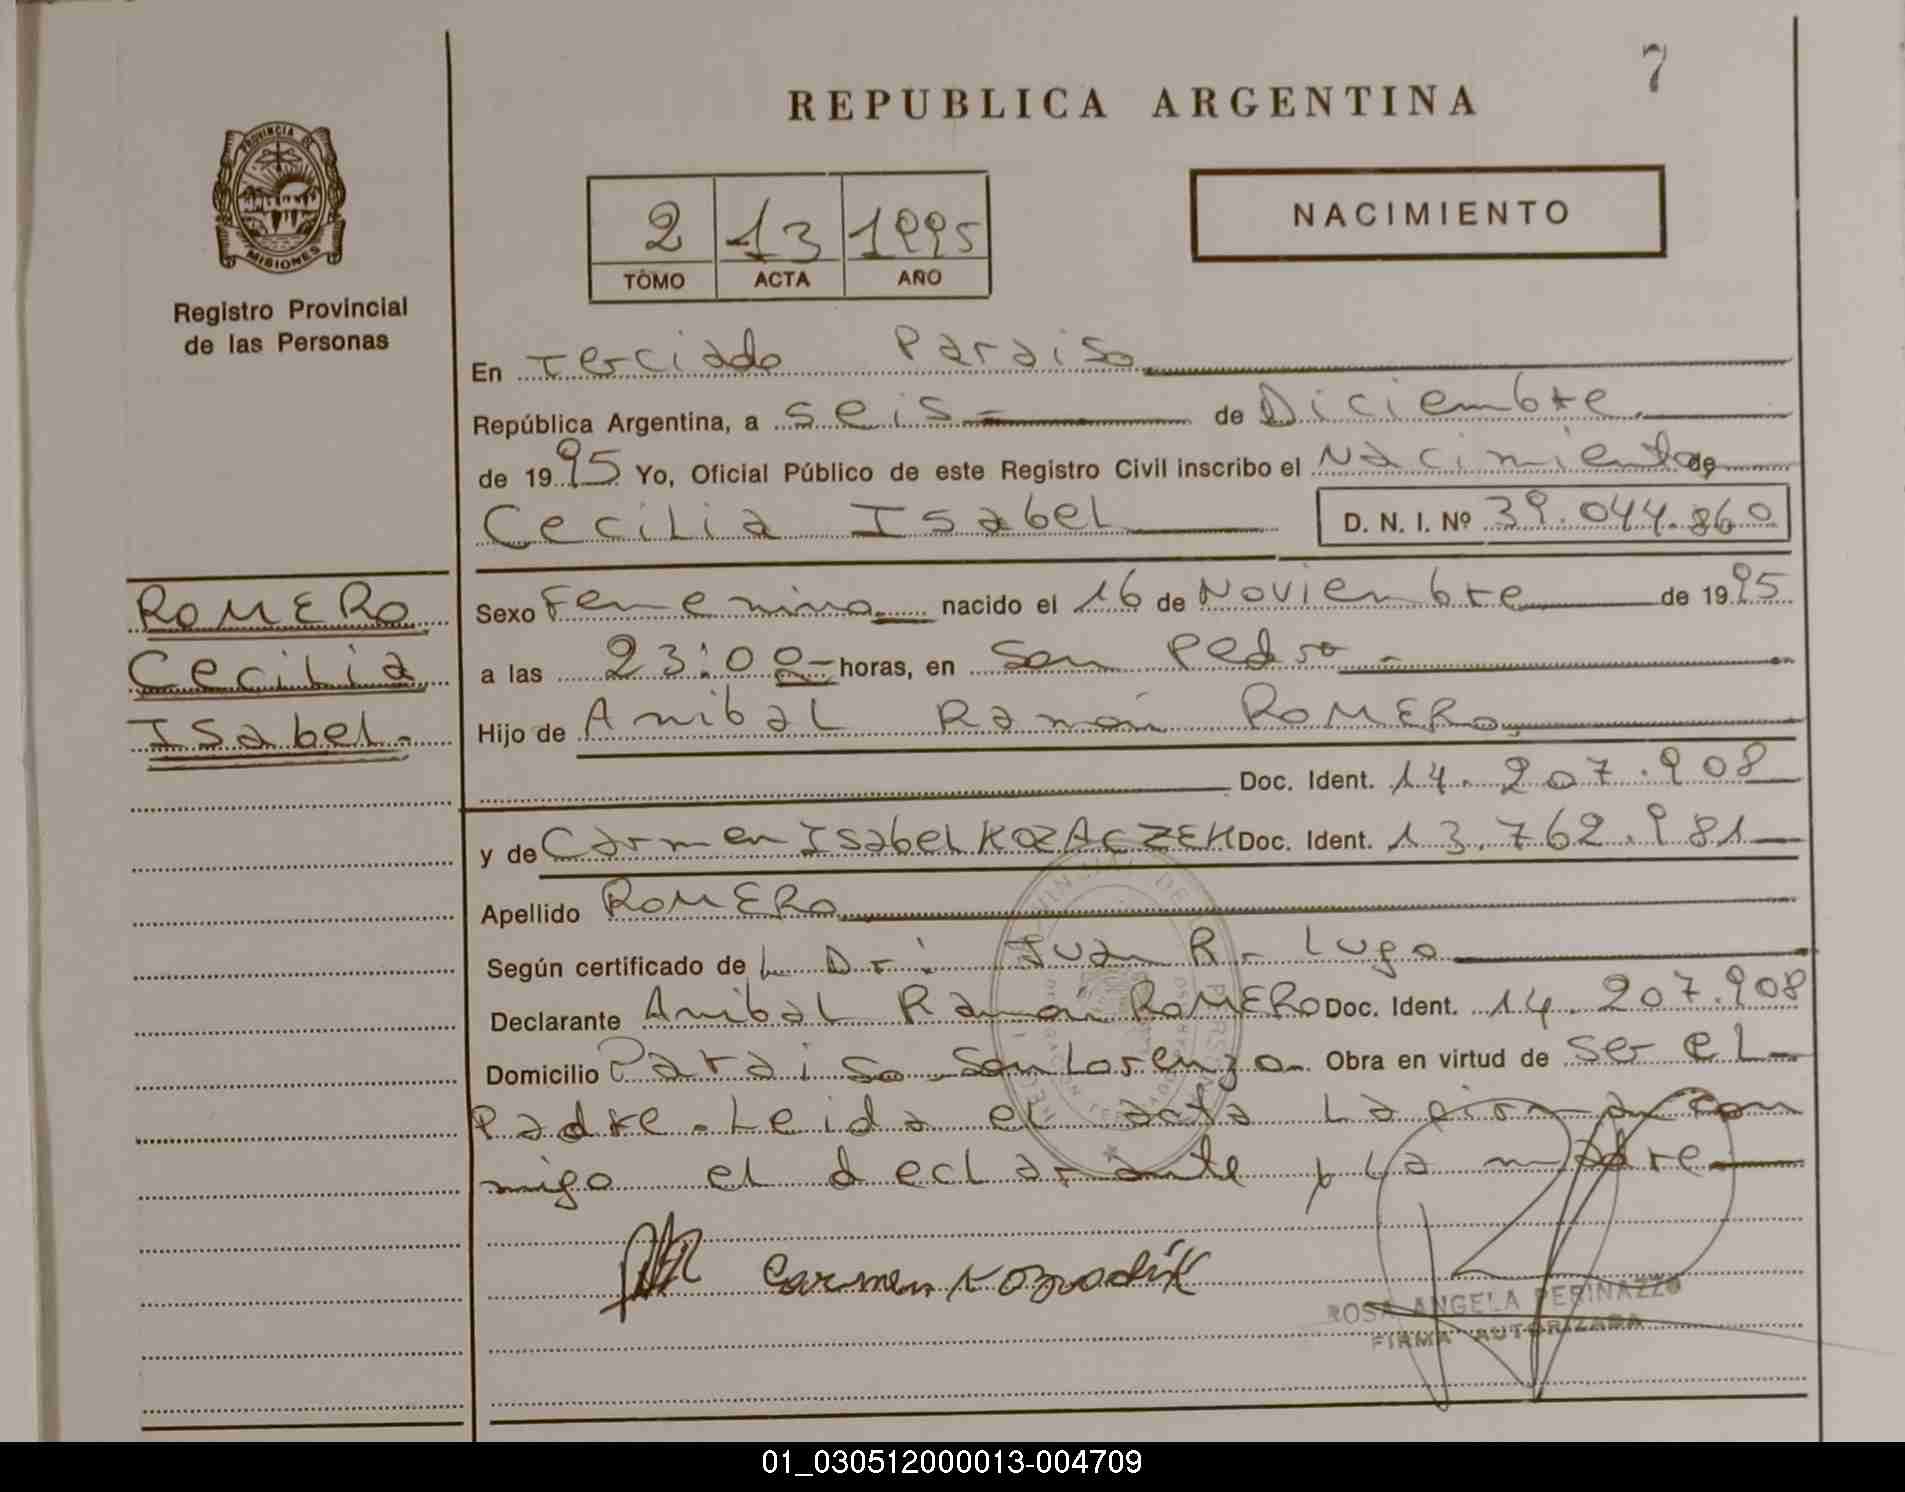 7
REPUBLICA ARGENTINA
PROVINCIA DE
MISIONES
Registro Provincial
de las Personas
2 13 1995
TOMO ACTA AÑO
NACIMIENTO
En Terciado Paraiso
República Argentina, a seis de Diciembre
de 1995 Yo, Oficial Público de este Registro Civil inscribo el Nacimiento de
Cecilia Isabel D. N. I. Nº 39.044.860
ROMERO
Cecilia
Isabel.
Sexo Femenino nacido el 16 de Noviembre de 1995
a las 23:00 horas, en San Pedro
Hijo de Anibal Ramón ROMERO
Doc. Ident. 14.207.908
y de Carmen Isabel KOZACZEK Doc. Ident. 13.762.981
Apellido ROMERO
Según certificado de L Dr: Juan R. Lugo
Declarante Anibal Ramón ROMERO Doc. Ident. 14.207.908
Domicilio Paraiso San Lorenzo. Obra en virtud de ser el
Padre. Leida el acta la firman con
migo el declarante y la madre
Carmen
ROSA ANGELA PERINAZZO
FIRMA AUTORIZADA
01_030512000013-004709